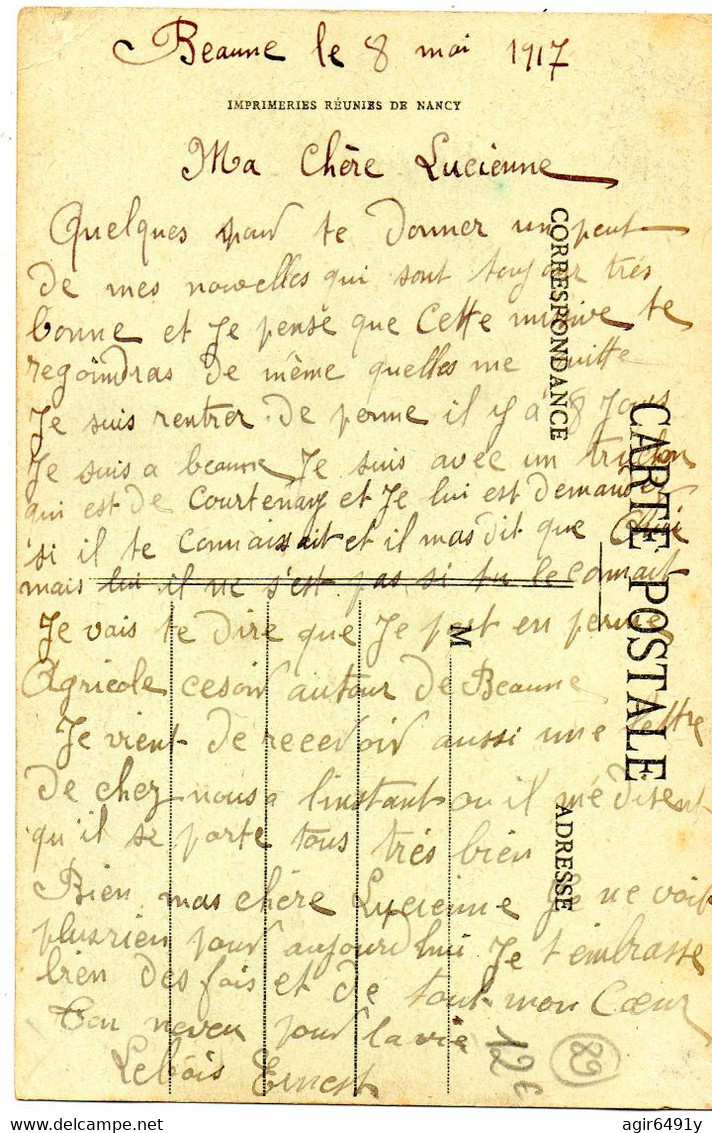 Beaune le 8 mai 1917
IMPRIMERIES RÉUNIES DE NANCY
Ma Chère Lucienne
Quelques pour te donner un peut
de mes nouvelles qui sont toujour trés
bonne et Je pense que Cette missive te
regoindras de même quelles me quitte
Je suis rentrer de perme il y a 8 Jours
Je suis a beaune Je suis avec un
qui est de Courtenay et Je lui est demandé
si il te Connaissait et il mas dit que
mais lui il ne s'est pas si tu le Connait
Je vais te dire que Je part en perme
Agricole cesoir autour de Beaune
Je vient de recevoir aussi une lettre
de chez nous a l'instant ou il me disent
qu'il se porte tous trés bien
Bien mas chère Lucienne Je ne voit
plus rien pour aujourd'hui Je t'embrasse
bien des fois et de tout mon Cœur
Ton neveu pour la vie
Lebois Ernest
12€
89
CORRESPONDANCE
CARTE POSTALE
M
ADRESSE
delcampe.net
agir6491y